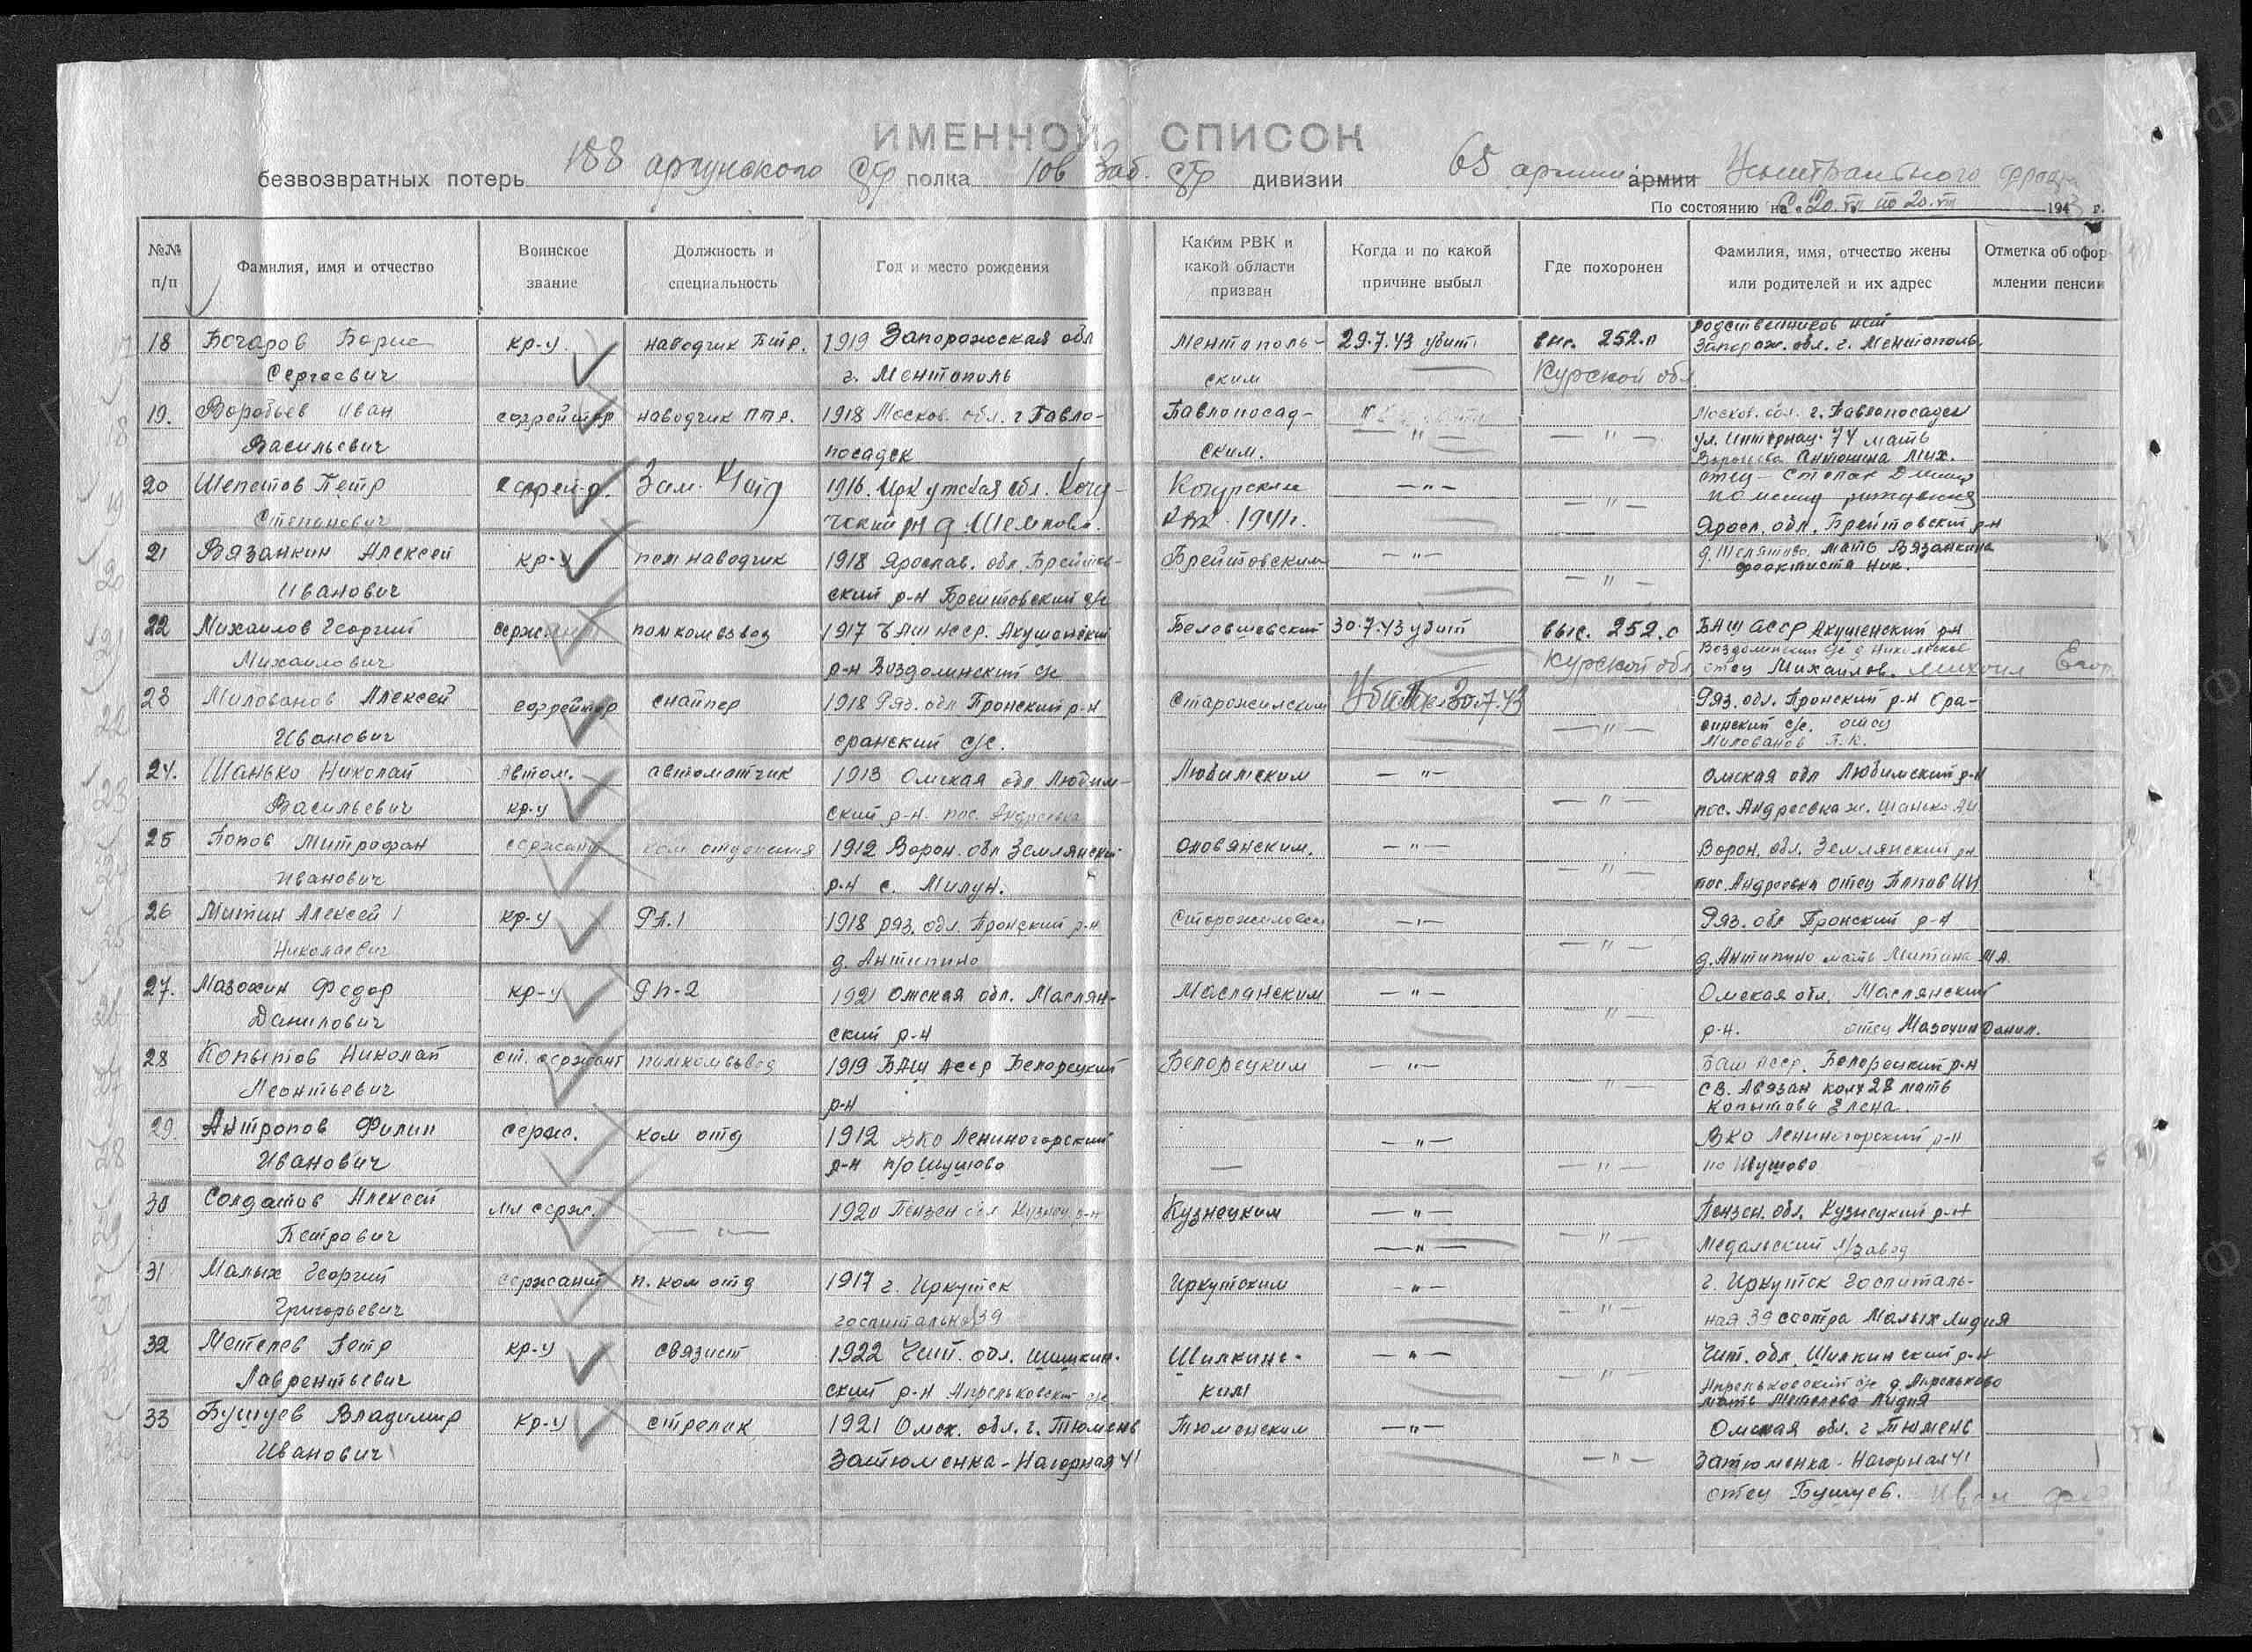 ИМЕННОЙ СПИСОК
безвозвратных потерь 188 аргунского стр полка 106 Заб. стр дивизии 65 армии армии Центрального фрон
По состоянию на с 20.VII по 20.VIII 1943 г.
№№ п/п
Фамилия, имя и отчество
Воинское звание
Должность и специальность
Год и место рождения
Каким РВК и какой области призван
Когда и по какой причине выбыл
Где похоронен
Фамилия, имя, отчество жены или родителей и их адрес
Отметка об оформлении пенсии
родственников нет
18 Бочаров Борис кр-ц. наводчик Птр. 1919 Запорожская обл Ментополь- 29.7.43 убит выс. 252.п Запорож. обл. г. Ментополь.
Сергеевич г. Ментополь ским Курской обл
19. Воробьев Иван ефрейтор наводчик птр. 1918 Москов. обл. г Павло- Павлопосад- Москов. обл. г. Павлопосадск
Васильевич посадск ским. — " — — " — ул. Интернац. 74 мать
Антонина Мих.
20 Петр ефрей-р. Зам. 1916 Иркутская обл. — " — отец
Степанович 1941г. — " —
Яросл. обл. Брейтовский р-н
21 Вязанкин Алексей кр-ц пом наводчик 1918 Ярослав. обл. Брейтов- Брейтовским — " — мать Вязанкина
Иванович ский р-н Брейтовский с/с — " — Ник.
22 Михаилов Георгий серж. помкомвзвод 1917 БАШ АССР. 30.7.43 убит выс. 252.0 БАШ АССР р-н
Михаилович р-н Воздолинский с/с Курской обл отец Михаилов. Михаил Егор
23 Милованов Алексей ефрейтор снайпер 1918 Ряз. обл Пронский р-н Старожилским Убит 30.7.43 Ряз. обл. Пронский р-н
Иванович с/с. — " — с/с. отец
Милованов П.К.
24. Шанько Николай Автом. автоматчик 1913 Омская обл Любим- Любимским — " — Омская обл Любимский р-н
Васильевич кр-ц ский р-н. пос. Андреевка — " — пос. Андреевка ж. Шанько
25 Попов Митрофан сержант ком отделения 1912 Ворон. обл Землянский Оловянским. — " — Ворон. обл. Землянский р-н
Иванович р-н с. Милун. — " — пос. Андреевка отец Попов ИИ
26 Митин Алексей кр-ц РП.1 1918 ряз. обл. Пронский р-н — " — Ряз. обл Пронский р-н
Николаевич д. Антипино — " — д. Антипино мать Митина МА.
27. Мазохин Федор кр-ц РП-2 1921 Омская обл. Маслян- Маслянским — " — Омская обл. Маслянский
Данилович ский р-н — " — р-н. отец Мазохин Данил.
28 Копытов Николай ст. сержант помкомвзвод 1919 БАШ АССР Белорецкий Белорецким — " — Баш АССР. Белорецкий р-н
Леонтьевич р-н — " — мать
Копытова Елена.
29. Антропов Филип серж. ком отд 1912 ВКО Лениногорский — " — ВКО Лениногорский р-н
Иванович р-н п/о Шушово — — " — по Шушово
30 Солдатов Алексей мл серж. 1920 Пензен обл Кузнец. р-н Кузнецким — " — Пензен. обл. Кузнецкий р-н
Петрович — " — — " — — " — завод
31 Малых Георгий сержант п. ком отд 1917 г. Иркутск Иркутским — " — г. Иркутск Госпиталь-
Григорьевич госпитальная 39 — " — ная 39 сестра Малых Лидия
32 Метелев Петр кр-ц связист 1922 Чит. обл. Шишкин- Шилкинс- — " — Чит. обл. Шилкинский р-н
Лаврентьевич ский р-н Апрельковский с/с ким — " — Апрельковский с/с д. Апрельково
мать Метелева Лидия
33 Бушуев Владимир кр-ц стрелок 1921 Омск. обл. г. Тюмень Тюменским — " — Омская обл. г Тюмень
Иванович Затюменка-Нагорная 41 — " — Затюменка-Нагорная 41
отец Бушуев. Иван